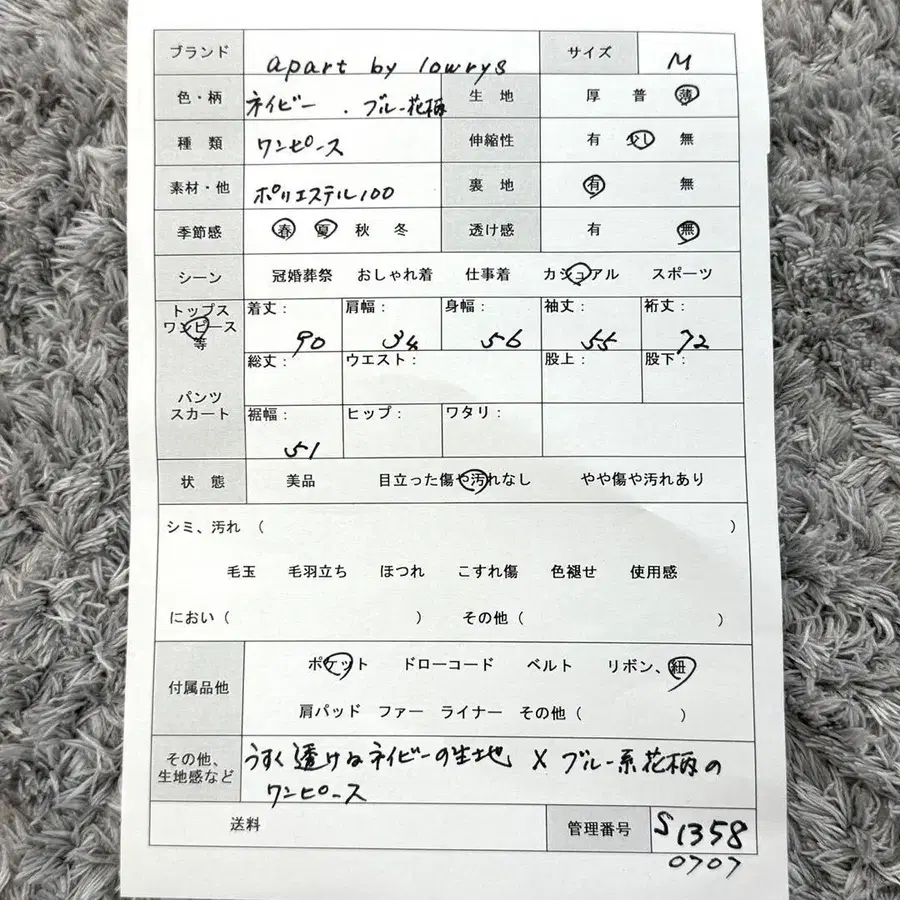 ブランド apart by lowrys サイズ M
色・柄 ネイビー . ブルー花柄 生地 厚 普 薄
種類 ワンピース 伸縮性 有 少し 無
素材・他 ポリエステル100 裏地 有 無
季節感 春 夏 秋 冬 透け感 有 無
シーン 冠婚葬祭 おしゃれ着 仕事着 カジュアル スポーツ
トップス
ワンピース
等
着丈: 90 肩幅: 34 身幅: 56 袖丈: 55 裄丈: 72
総丈: ウエスト: 股上: 股下:
パンツ
スカート
裾幅: 51 ヒップ: ワタリ:
状態 美品 目立った傷や汚れなし やや傷や汚れあり
シミ、汚れ ( )
毛玉 毛羽立ち ほつれ こすれ傷 色褪せ 使用感
におい ( ) その他 ( )
付属品他 ポケット ドローコード ベルト リボン、紐
肩パッド ファー ライナー その他 ( )
その他、
生地感など
うすく透けなネイビーの生地 × ブルー系花柄の
ワンピース
送料 管理番号 S1358
0707